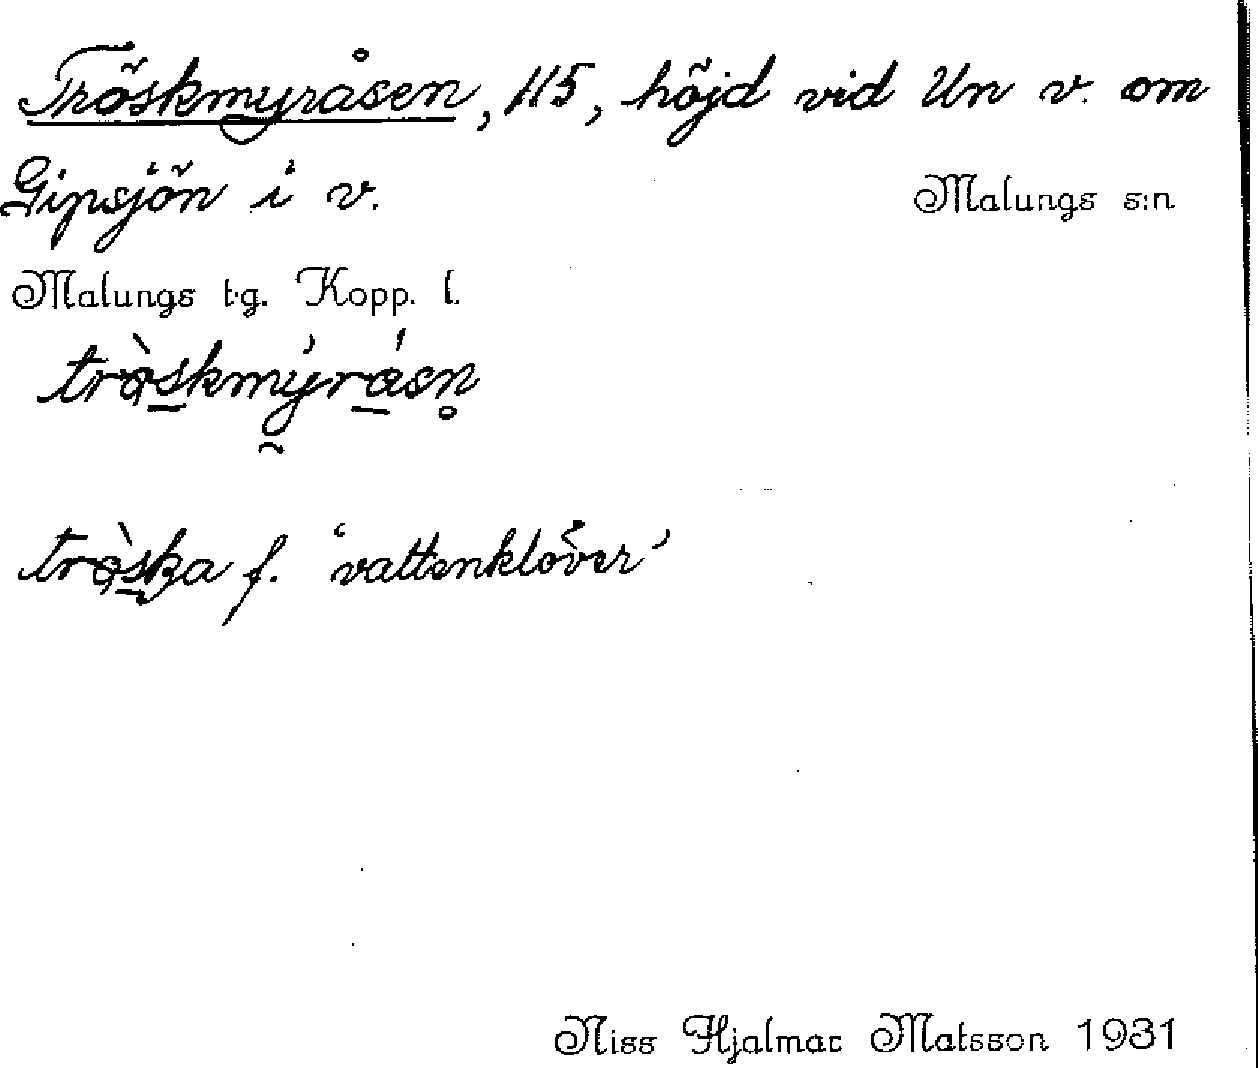 Tröskmyråsen, 115, höjd vid Un v. om
Gipsjön i v. Malungs s:n
Malungs t.g. Kopp. l.
tròskmýråsn̥
tròska f. 'vattenklöver'
Niss Hjalmar Matsson 1931